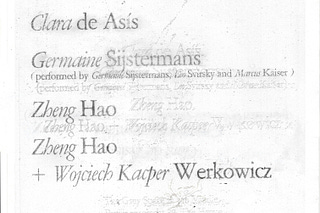 Clara de Asís
Germaine Sijstermans
(performed by Germaine Sijstermans, Leo Svirsky and Marcus Kaiser)
Zheng Hao
Zheng Hao
+ Wojciech Kacper Werkowicz